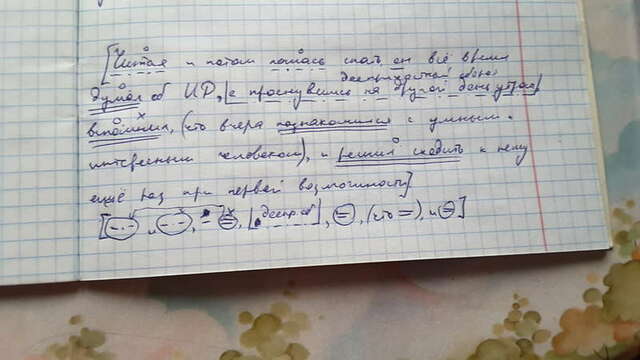 [Читая и потом ложась спать он всё время
деепричастный оборот
думал об ИР, |а проснувшись на другой день утром|
вспомнил, (что вчера познакомился с умным,
интересным человеком), и решил сходить к нему
ещё раз при первой возможности]
дееп. об
(что =), и